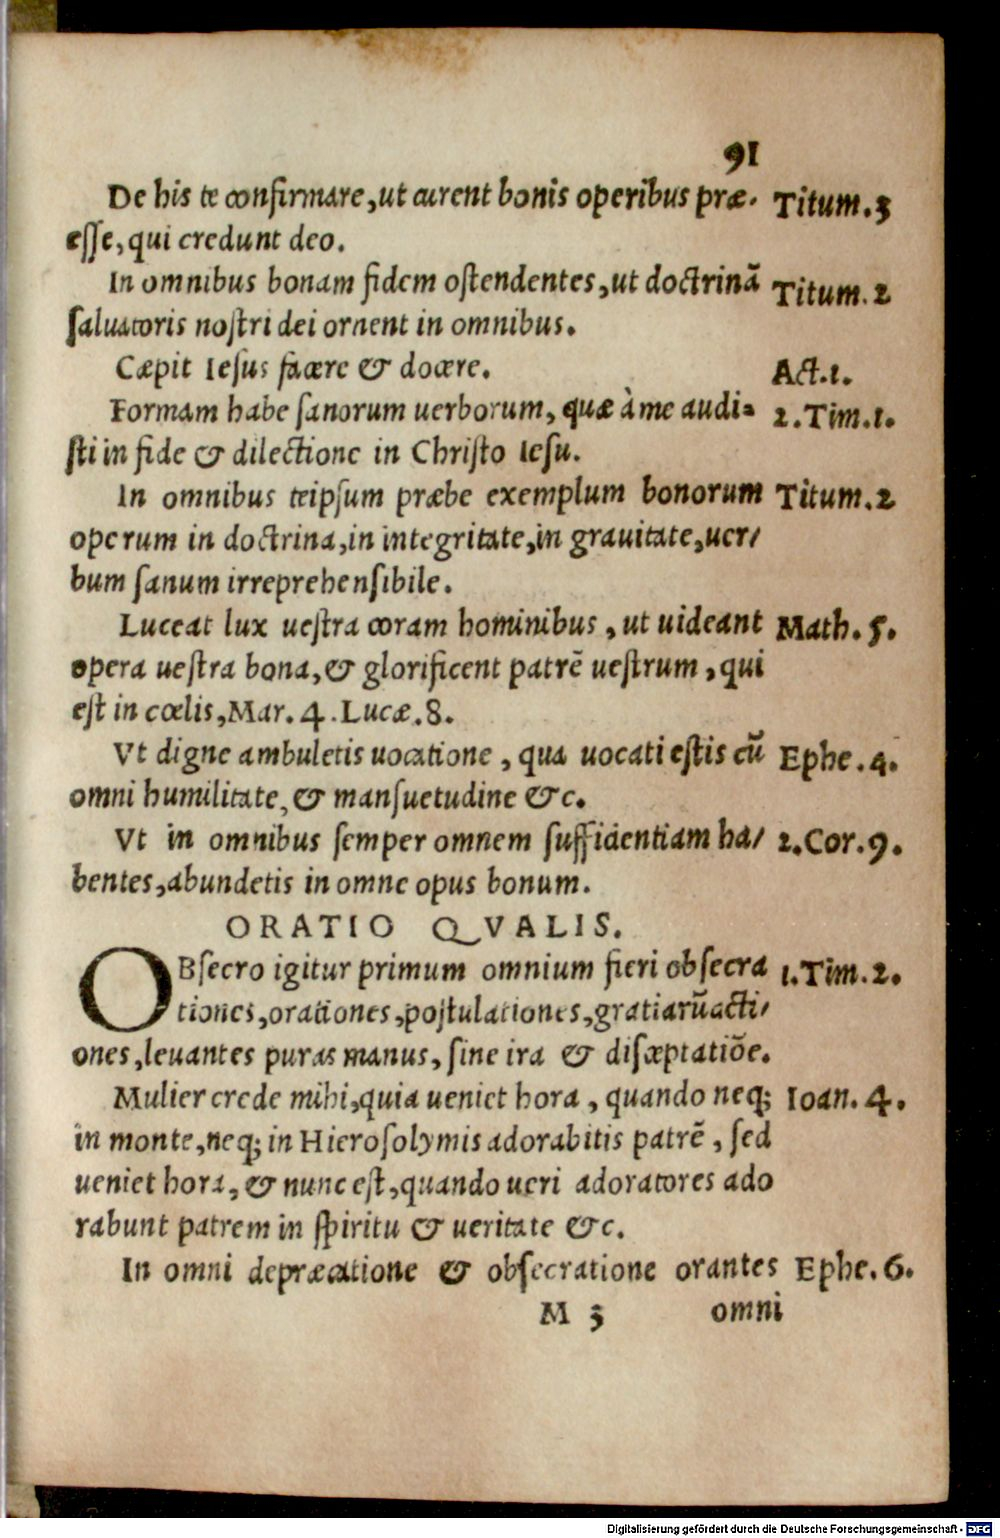 91
De his te confirmare,ut curent bonis operibus præ- Titum.3
esse, qui credunt deo.
In omnibus bonam fidem ostendentes,ut doctrinā Titum.2
saluatoris nostri dei ornent in omnibus.
Cæpit Iesus facere & docere. Act.1.
Formam habe sanorum uerborum, quæ à me audi- 2.Tim.1.
sti in fide & dilectione in Christo Iesu.
In omnibus teipsum præbe exemplum bonorum Titum.2
operum in doctrina,in integritate,in grauitate,uer/
bum sanum irreprehensibile.
Luceat lux uestra coram hominibus, ut uideant Math.5.
opera uestra bona,& glorificent patrē uestrum, qui
est in cœlis,Mar.4.Lucæ.8.
Vt digne ambuletis uocatione, qua uocati estis cū Ephe.4.
omni humilitate, & mansuetudine &c.
Vt in omnibus semper omnem sufficientiam ha/ 2.Cor.9.
bentes,abundetis in omne opus bonum.
ORATIO QVALIS.
OBsecro igitur primum omnium fieri obsecra 1.Tim.2.
tiones,orationes,postulationes,gratiarūacti/
ones,leuantes puras manus, sine ira & disceptatiōe.
Mulier crede mihi,quia ueniet hora, quando neq; Ioan.4.
in monte,neq; in Hierosolymis adorabitis patrē, sed
ueniet hora, & nunc est,quando ueri adoratores ado
rabunt patrem in spiritu & ueritate &c.
In omni depræcatione & obsecratione orantes Ephe.6.
M 3 omni
Digitalisierung gefördert durch die Deutsche Forschungsgemeinschaft - DFG